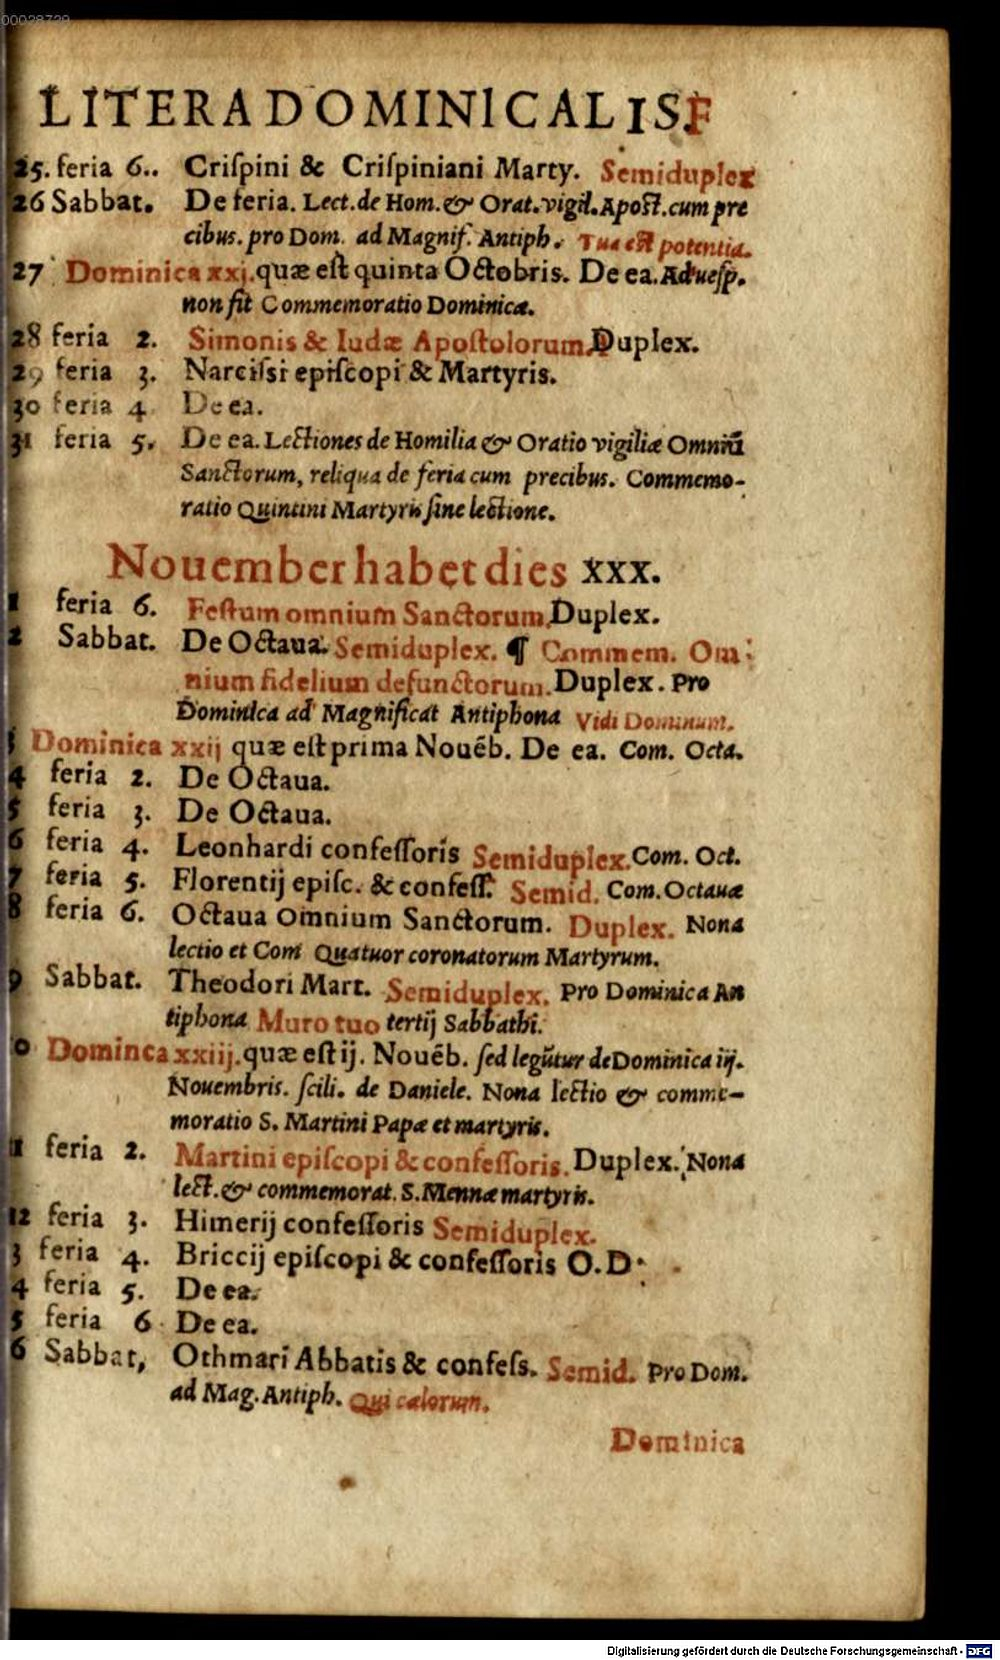 00028729
LITERA DOMINICALIS F
25. feria 6.. Criſpini & Criſpiniani Marty. Semiduplex
26 Sabbat. De feria. Lect. de Hom. & Orat. vigil. Apoſt. cum pre
cibus. pro Dom. ad Magnif. Antiph. Tua eſt potentia.
27 Dominica xxj. quæ eſt quinta Octobris. De ea. Ad veſp.
non fit Commemoratio Dominicæ.
28 feria 2. Simonis & Iudæ Apoſtolorum. Duplex.
29 feria 3. Narciſsi epiſcopi & Martyris.
30 feria 4 De ea.
31 feria 5. De ea. Lectiones de Homilia & Oratio vigiliæ Omniū
Sanctorum, reliqua de feria cum precibus. Commemo-
ratio Quintini Martyris ſine lectione.
Nouember habet dies xxx.
1 feria 6. Feſtum omnium Sanctorum. Duplex.
2 Sabbat. De Octaua. Semiduplex. ¶ Commem. Om-
nium fidelium defunctorum. Duplex. Pro
Dominica ad Magnificat Antiphona Vidi Dominum.
3 Dominica xxij quæ eſt prima Nouēb. De ea. Com. Octa.
4 feria 2. De Octaua.
5 feria 3. De Octaua.
6 feria 4. Leonhardi confeſſoris Semiduplex. Com. Oct.
7 feria 5. Florentij epiſc. & confeſſ. Semid. Com. Octauæ
8 feria 6. Octaua Omnium Sanctorum. Duplex. Nona
lectio et Com Quatuor coronatorum Martyrum.
9 Sabbat. Theodori Mart. Semiduplex. Pro Dominica An
tiphona Muro tuo tertij Sabbathi.
0 Dominca xxiij. quæ eſt ij. Nouēb. ſed legūtur de Dominica iij.
Nouembris. ſcili. de Daniele. Nona lectio & comme-
moratio S. Martini Papæ et martyris.
11 feria 2. Martini epiſcopi & confeſſoris. Duplex. Nona
lect. & commemorat. S. Mennæ martyris.
12 feria 3. Himerij confeſſoris Semiduplex.
3 feria 4. Briccij epiſcopi & confeſſoris O. D.
4 feria 5. De ea.
5 feria 6 De ea.
6 Sabbat, Othmari Abbatis & confeſs. Semid. Pro Dom.
ad Mag. Antiph. Qui cælorum.
Dominica
Digitalisierung gefördert durch die Deutsche Forschungsgemeinschaft - DFG